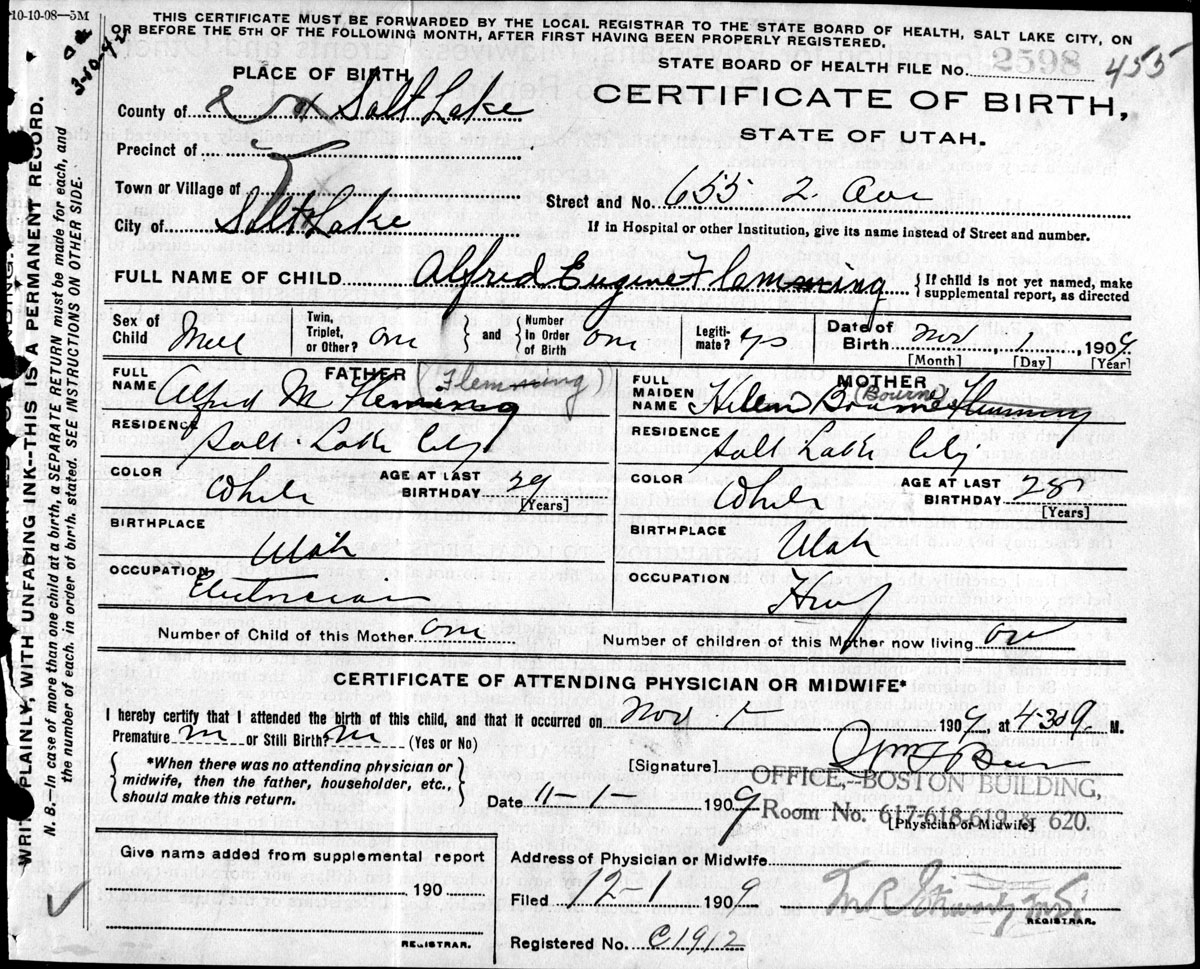 10-10-98—5M
THIS CERTIFICATE MUST BE FORWARDED BY THE LOCAL REGISTRAR TO THE STATE BOARD OF HEALTH, SALT LAKE CITY, ON
OR BEFORE THE 5TH OF THE FOLLOWING MONTH, AFTER FIRST HAVING BEEN PROPERLY REGISTERED.
3-10-42
STATE BOARD OF HEALTH FILE No. 2598 455
PLACE OF BIRTH
CERTIFICATE OF BIRTH,
STATE OF UTAH.
County of Salt Lake
Precinct of
Town or Village of
Street and No. 655 2 Ave
City of Salt Lake
If in Hospital or other Institution, give its name instead of Street and number.
FULL NAME OF CHILD Alfred Eugene Flemming { If child is not yet named, make
supplemental report, as directed
Sex of Child Male
Twin, Triplet, or Other? one } and { Number In Order of Birth one
Legiti- mate? yes
Date of Birth Nov 1, 1909
[Month] [Day] [Year]
FATHER
FULL NAME Alfred M Flemming (Flemming)
MOTHER
FULL MAIDEN NAME Helen Bourne (Bourne) Flemming
RESIDENCE Salt Lake City
RESIDENCE Salt Lake City
COLOR White AGE AT LAST BIRTHDAY 29 [Years]
COLOR White AGE AT LAST BIRTHDAY 28 [Years]
BIRTHPLACE Utah
BIRTHPLACE Utah
OCCUPATION Electrician
OCCUPATION Hwf
Number of Child of this Mother one
Number of children of this Mother now living one
CERTIFICATE OF ATTENDING PHYSICIAN OR MIDWIFE*
I hereby certify that I attended the birth of this child, and that it occurred on Nov 1 1909, at 4-30 9. M.
Premature no or Still Birth? no (Yes or No)
{ *When there was no attending physician or
midwife, then the father, householder, etc.,
should make this return. }
[Signature]
OFFICE,—BOSTON BUILDING,
Date 11-1- 1909
Room No. 617-618-619 & 620.
[Physician or Midwife]
Give name added from supplemental report
190
REGISTRAR.
Address of Physician or Midwife
Filed 12-1 1909
REGISTRAR.
Registered No. C1912
WRITE PLAINLY WITH UNFADING INK—THIS IS A PERMANENT RECORD.
N. B.—In case of more than one child at a birth, a SEPARATE RETURN must be made for each, and
the number of each, in order of birth, stated. SEE INSTRUCTIONS ON OTHER SIDE.